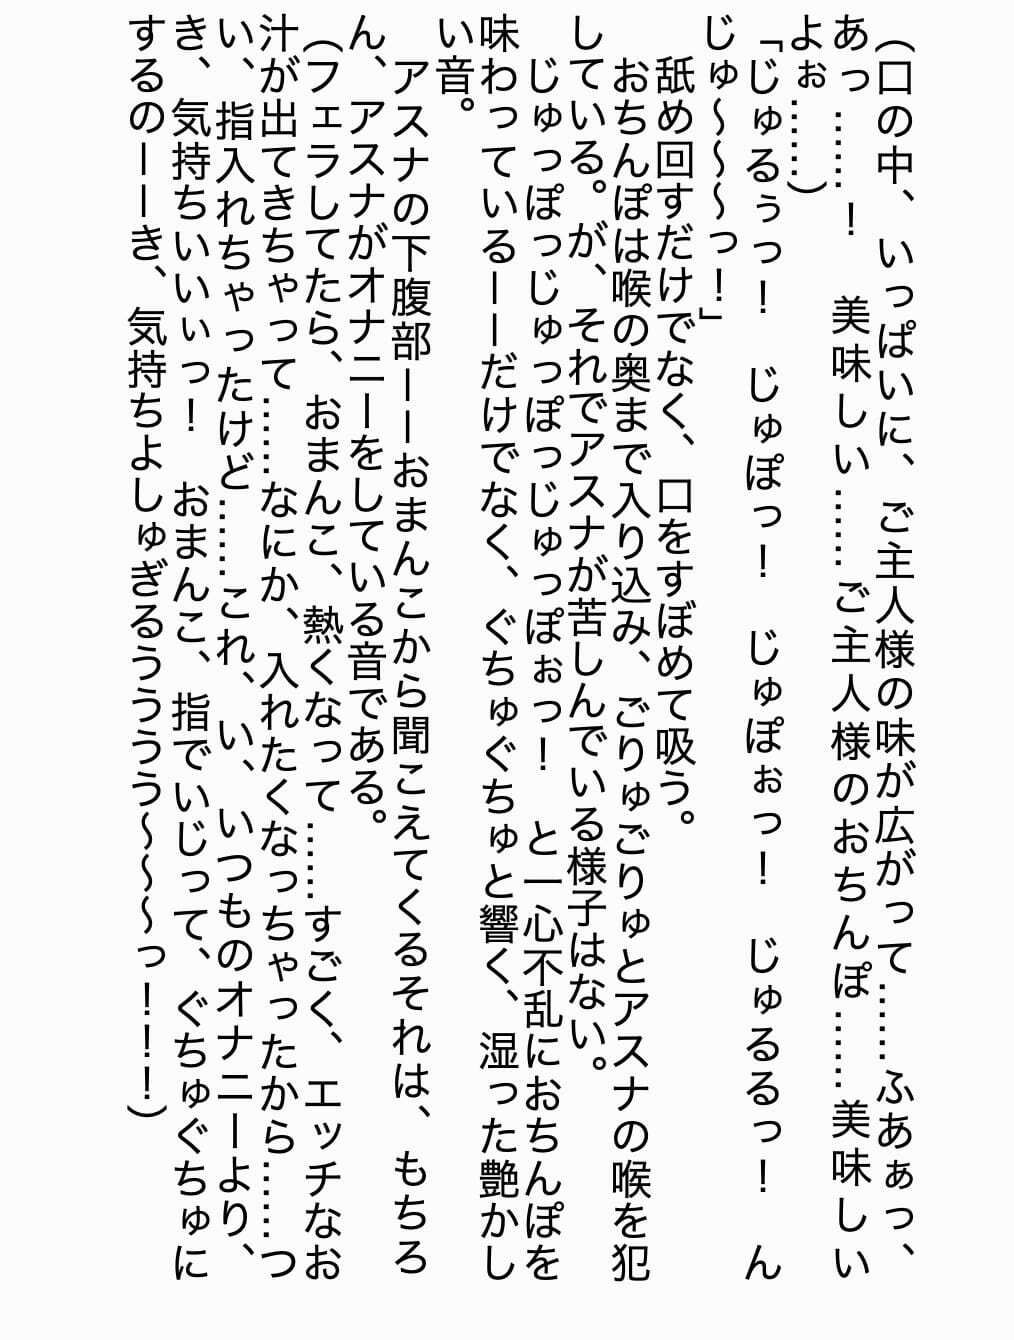 （口の中、いっぱいに、ご主人様の味が広がって……ふあぁっ、
あっ……！　美味しい……ご主人様のおちんぽ……美味しい
よぉ……）
「じゅるぅっ！　じゅぽっ！　じゅぽぉっ！　じゅるるっ！　ん
じゅ〜〜〜っ！」
　舐め回すだけでなく、口をすぼめて吸う。
　おちんぽは喉の奥まで入り込み、ごりゅごりゅとアスナの喉を犯
している。が、それでアスナが苦しんでいる様子はない。
　じゅっぽっじゅっぽっじゅっぽぉっ！　と一心不乱におちんぽを
味わっているーーだけでなく、ぐちゅぐちゅと響く、湿った艶かし
い音。
　アスナの下腹部ーーおまんこから聞こえてくるそれは、もちろ
ん、アスナがオナニーをしている音である。
（フェラしてたら、おまんこ、熱くなって……すごく、エッチなお
汁が出てきちゃって……なにか、入れたくなっちゃったから……つ
い、指入れちゃったけど……これ、い、いつものオナニーより、
き、気持ちいいぃっ！　おまんこ、指でいじって、ぐちゅぐちゅに
するのーーき、気持ちよしゅぎるうううう〜〜〜っ！！！）